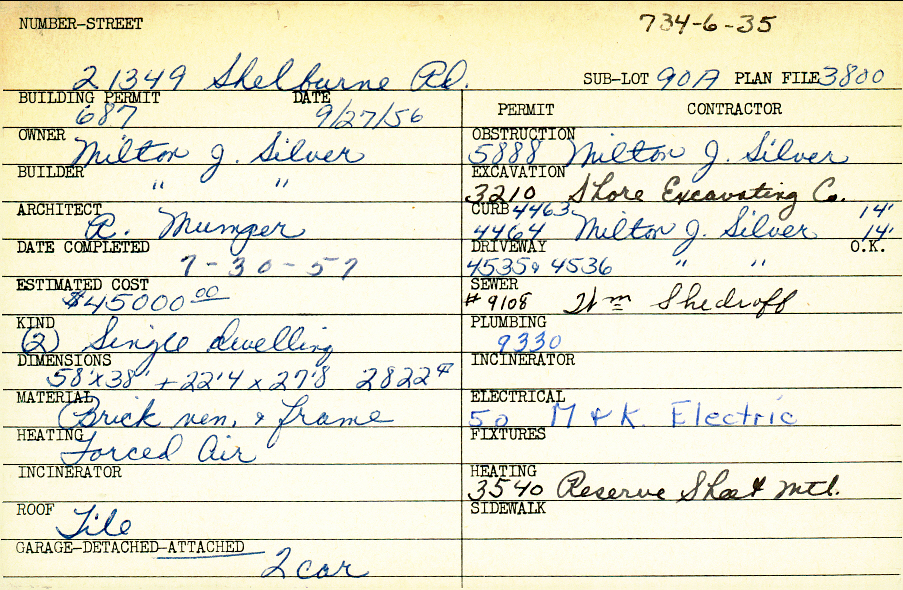 NUMBER-STREET
734-6-35
21349 Shelburne Rd.
SUB-LOT 90A PLAN FILE 3800
BUILDING PERMIT DATE
687 9/27/56
OWNER
Milton J. Silver
BUILDER
" "
ARCHITECT
R. Mumper
DATE COMPLETED
7-30-57
ESTIMATED COST
$45000 00
KIND
(2) Single dwelling
DIMENSIONS
58'x38' + 22'4 x 27'8 2822 #
MATERIAL
Brick ven. & frame
HEATING
Forced Air
INCINERATOR
ROOF
Tile
GARAGE-DETACHED-ATTACHED
2 car
PERMIT CONTRACTOR
OBSTRUCTION
5888 Milton J. Silver
EXCAVATION
3210 Shore Excavating Co.
CURB 4463 14'
4464 Milton J. Silver 14'
DRIVEWAY O.K.
4535 & 4536 " "
SEWER
# 9108 Wm Shedroff
PLUMBING
9330
INCINERATOR
ELECTRICAL
50 M & K. Electric
FIXTURES
HEATING
3540 Reserve Sheet Mtl.
SIDEWALK